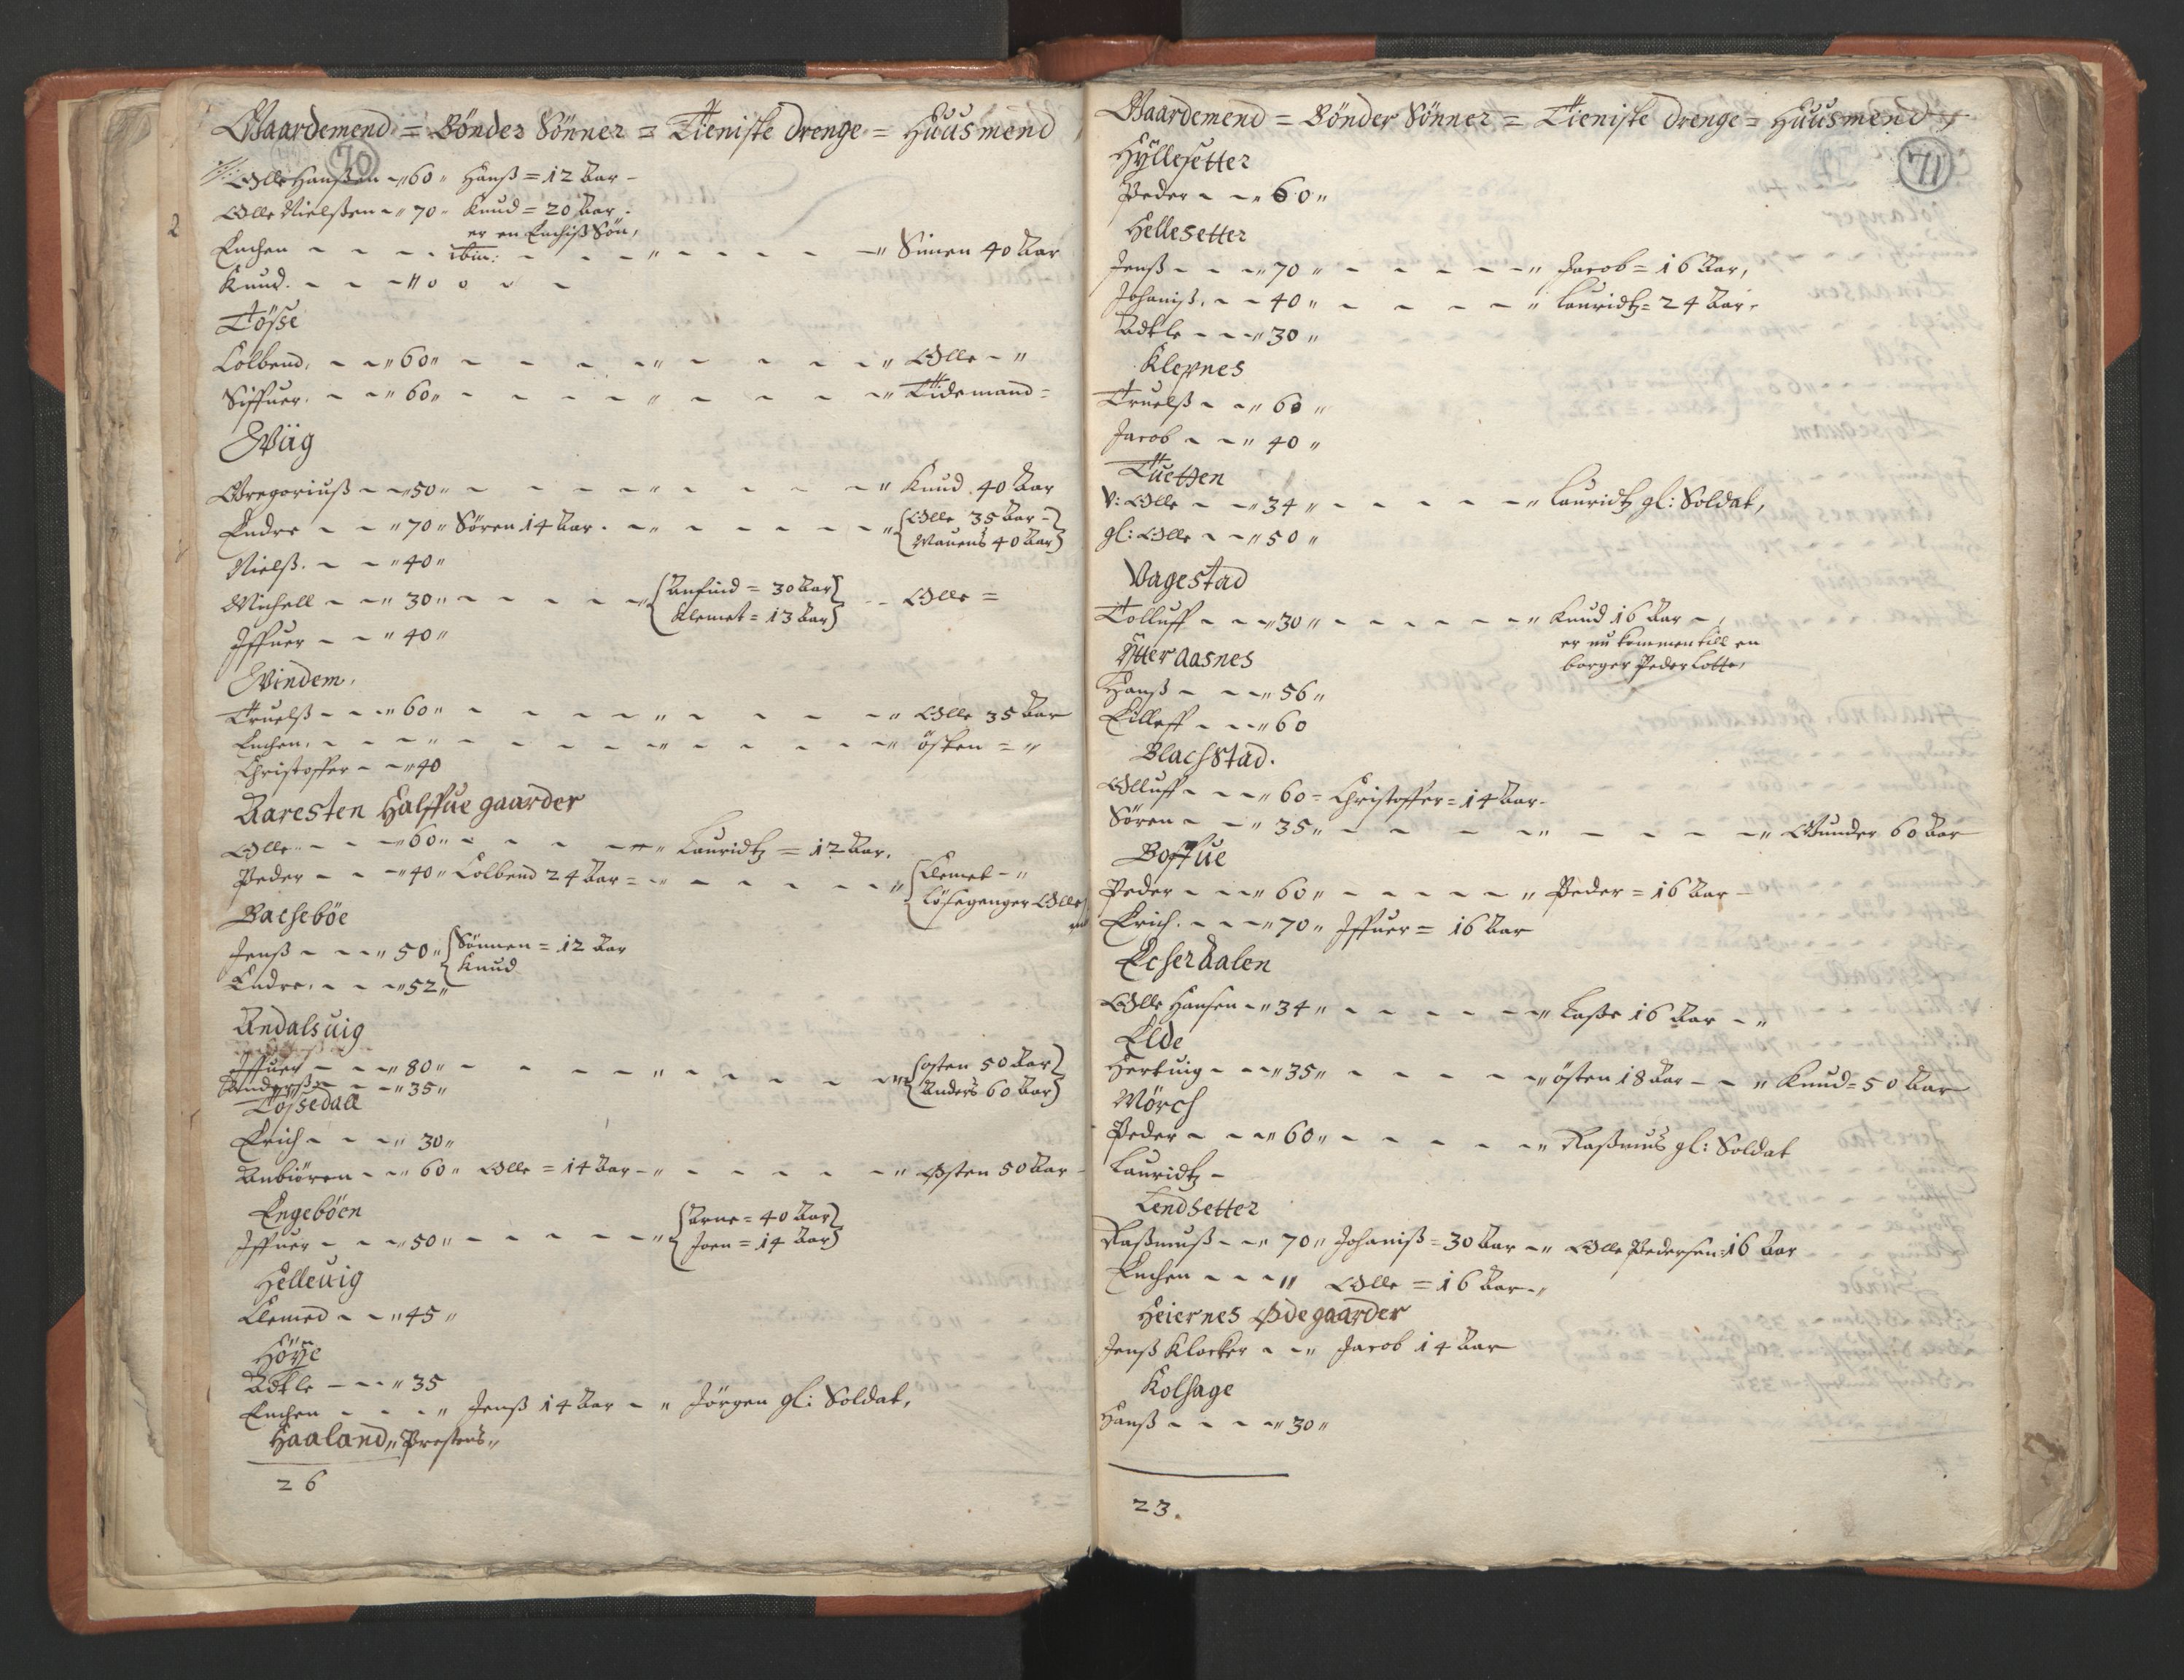 Gaardemend = Bönder Sönner = Tieniste drenge = Huusmend
70
Olle Hanßen - 60 Hanß = 12 Aar -
Olle Nielßen - 70 Knud = 20 Aar.
er en Enchiß Sön,
2
Enchen - - - - ibm: - - - - - - - Simen 40 Aar
Knud. - - -
Tösse
Colbend. - - 60 - - - - - - - - Olle -
Siffuer. - - 60 - - - - - - - - Tidemand =
Wiig
Gregoriuß - - 50 - - - - - - - Knud 40 Aar
Endre - - 70 Sören 14 Aar. - - - - - - { Olle 35 Aar - }
{ Mauens 40 Aar }
Nielß. - - 40
Michell - - 30 - - - - - { Anfind = 30 Aar } - - Olle =
{ Klemet = 13 Aar }
Iffuer - - 40
Windem.
Truelß - - - 60 - - - - - - - - Olle 35 Aar
Enchen. - - - - - - - - - - - östen =
Christoffer - - 40
Aaresten Halffue gaarder
Olle - - - 60 - - - - - Lauridtz = 12 Aar.
Peder - - - 40 Colbend 24 Aar = - - - - - - { Clemet -
{ Lösegenger Olle
Bachebøe
Jenß - - - 50 { Sönnen = 12 Aar
{ Knud
Endre. - - - 52
Andalsuig
Iffuer - - - 80 - - - - - - - - - { osten 50 Aar }
Anderß - - - 35 { Anders 60 Aar }
Tössedall
Erich - - - 30
Anbiören - - 60 Olle = 14 Aar - - - - - - Osten 50 Aar
Engebøen
Iffuer - - - 50 - - - - - { Arne = 40 Aar }
{ Joen = 14 Aar }
Helleuig
Clemed - - 45
Höÿe
Adtle - - - 35
Enchen - - - Jenß 14 Aar - Jörgen gl: Soldat,
Haaland, Prestens
26
Gaardemend = Bönder Sönner = Tieniste drenge = Huusmend
71
Hÿllesetter
Peder - - 60
Hellesetter
Jenß - - - 70 - - - - - Jacob = 16 Aar,
Johaniß. - - 40 - - - - Lauridtz = 24 Aar.
Adtle - - - 30
Klepnes
Truelß - - 60
Jacob - - 40
Tuetten
V: Olle - - 34 - - - - - Lauridtz gl: Soldat,
gl: Olle - - 50
Vagestad
Tolluff - - - 30 - - - - - - Knud 16 Aar -
er nu kommen till en
borger Peder Lotte,
Ytter aasnes
Hanß - - - 56
Eilleff - - - 60
Blachstad.
Olluff - - - 60 = Christoffer = 14 Aar.
Sören - - 35 - - - - - - - - Gunder 60 Aar
Boffue
Peder - - - 60 - - - - - Peder = 16 Aar
Erich. - - - 70 Iffuer = 16 Aar
Echerdalen
Olle Hansen - 34 - - - - - - Laße 16 Aar -
Elde
Hertuig - - - 35 - - - - - - östen 18 Aar - - Knud = 50 Aar
Mörch
Peder - - - 60 - - - - - - Raßmus gl: Soldat
Lauridtz -
Lendsetter
Raßmuß - - 70 Johaniß = 30 Aar - Olle Pedersen = 16 Aar
Enchen - - - Olle = 16 Aar -
Heiernes Ødegaarder
Jenß Klocker - - Jacob 14 Aar
Kolhage
Hanß - - - - 30
23.